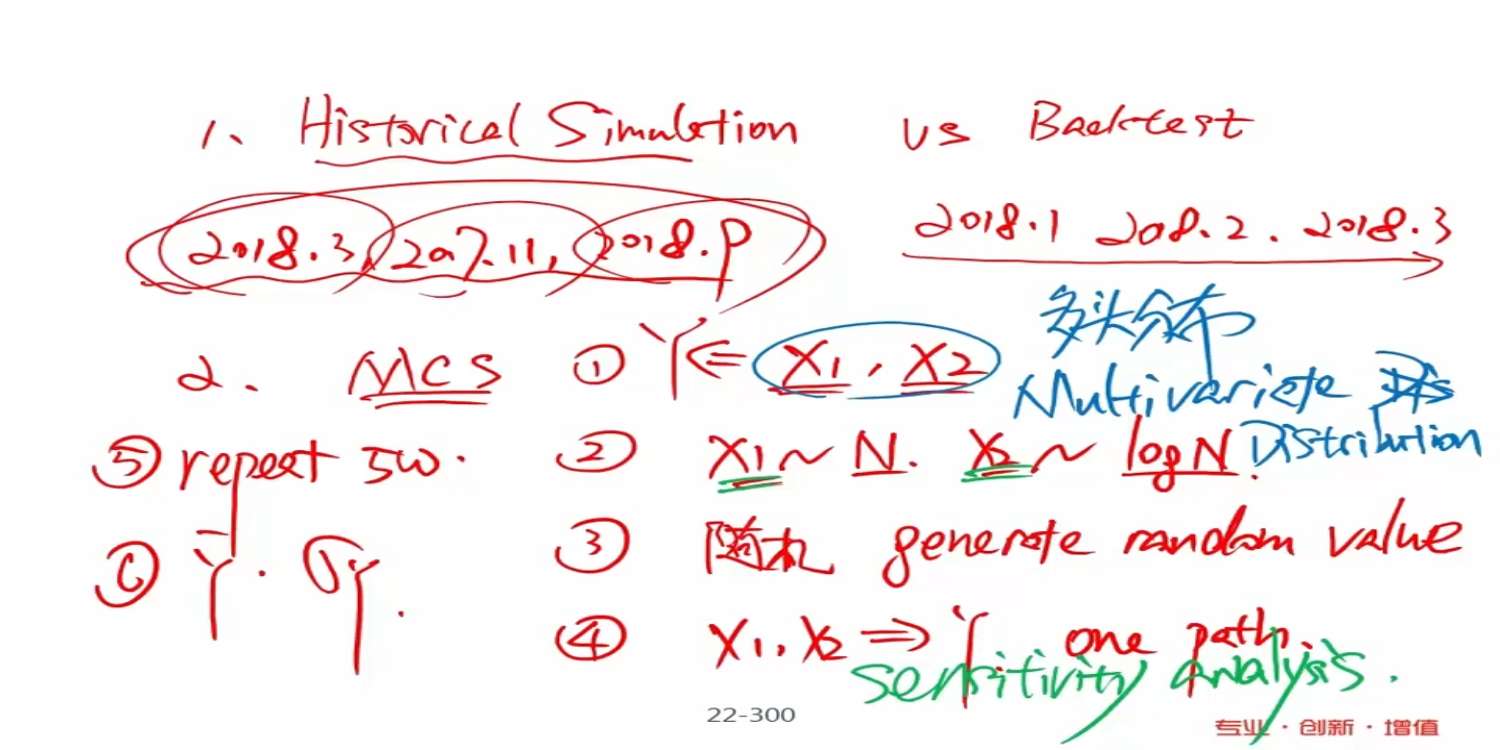 1、 Historical Simulation vs Backtest
2018.3, 2017.11, 2018.9
2018.1 2018.2. 2018.3
2. MCS ① Y ⇐ X1, X2
多头分布
Multivariate Dis
Distribution
② X1 ~ N. X2 ~ logN.
③ 随机 generate random value
④ X1, X2 ⇒ Y one path.
sensitivity analysis.
⑤ repeat 500.
⑥ Ȳ. σY.
22-300
专业·创新·增值